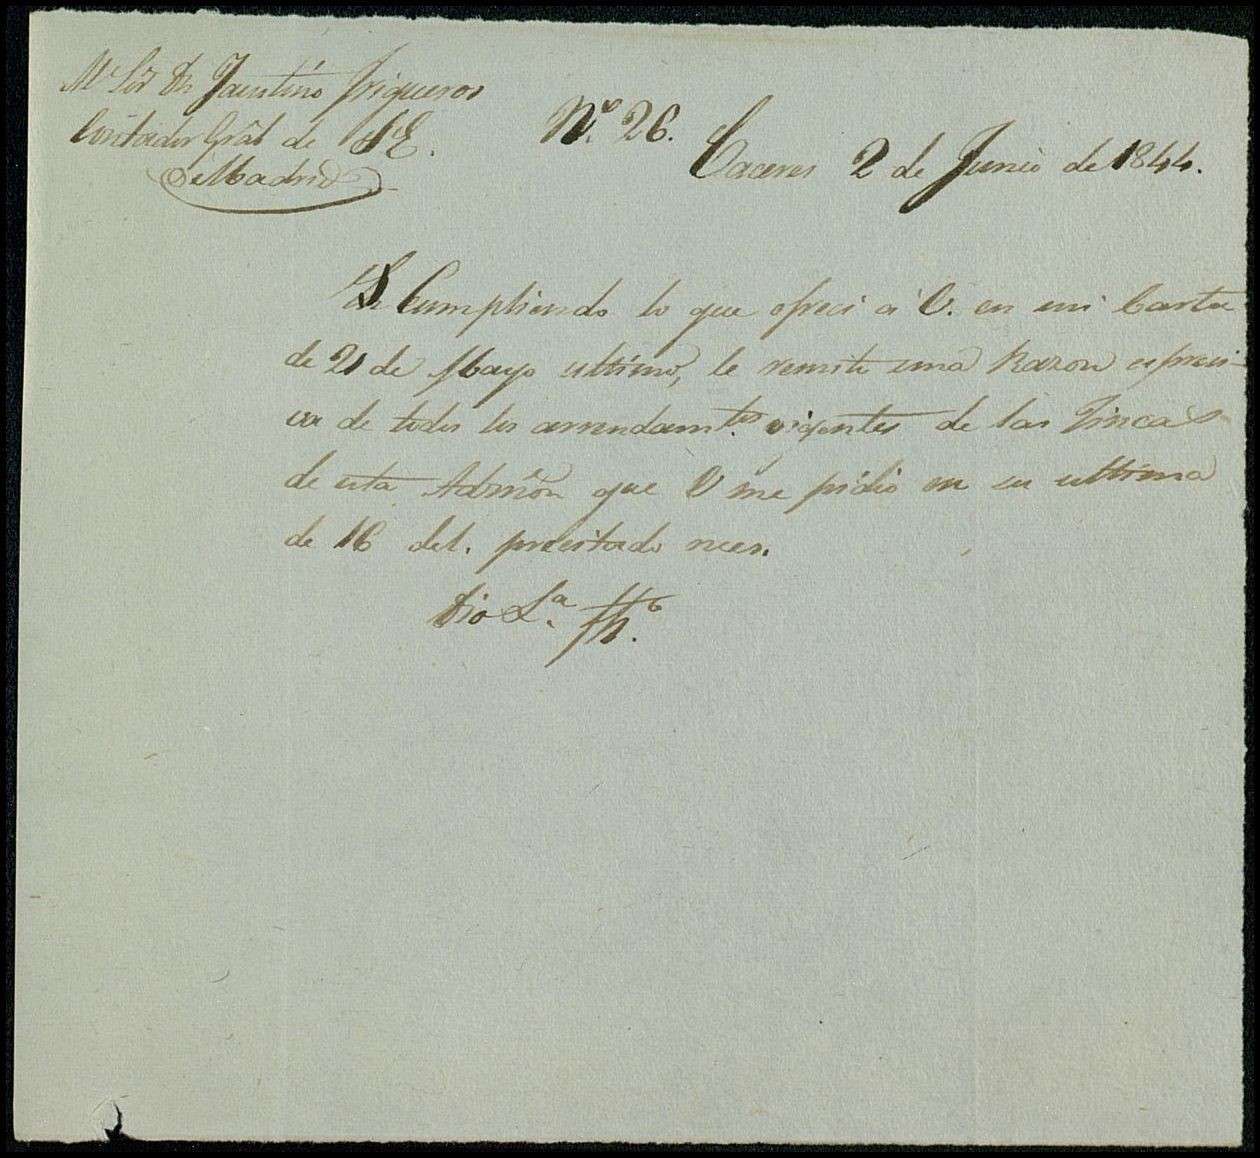 Sor Dn Faustino Trigueros
Contador Gral de S.E.
Madrid
N.º 26.
Caceres 2 de Junio de 1844.
Cumpliendo lo que ofreci á V. en mi Carta
de 21 de Mayo ultimo, le remito una Razon espresi-
va de todos los arrendamtos. vigentes de las Fincas
de esta Admōn que V me pidió en su ultima
de 16 del. precitado mes.
Dio L.ª